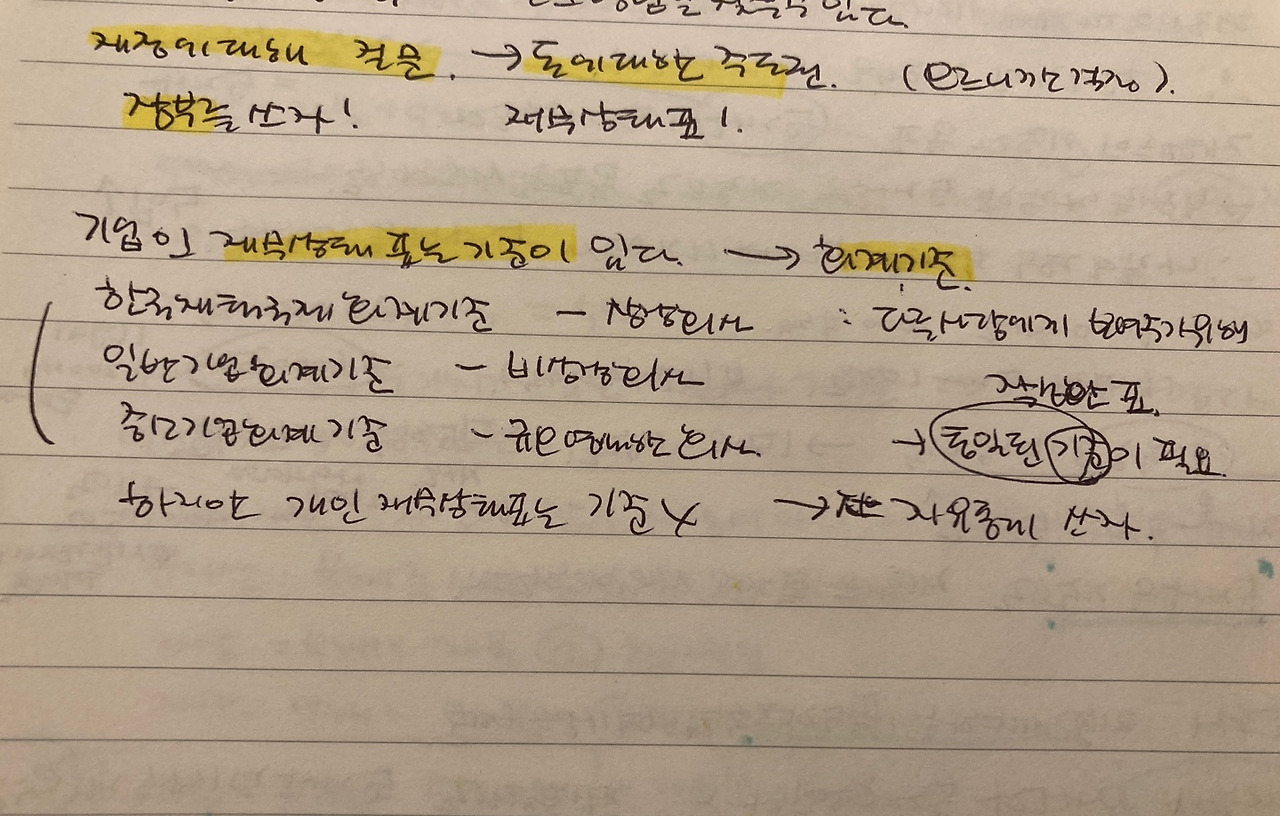 찾을수 있다.
재정에대해 질문. → 돈에대한 주도권. (모르니까는걱정).
장부를 쓰자! 재무상태표!.
기업의 재무상태표는 기준이 있다. → 회계기준.
한국채택국제회계기준 - 상장회사 : 다른사람에게 보여주기위해
일반기업회계기준 - 비상장회사 작성한 표.
중소기업회계기준 - 규모영세한 회사 → 통일된 기준이 필요
하지만 개인재무상태표는 기준X → 자유롭게 쓰자.